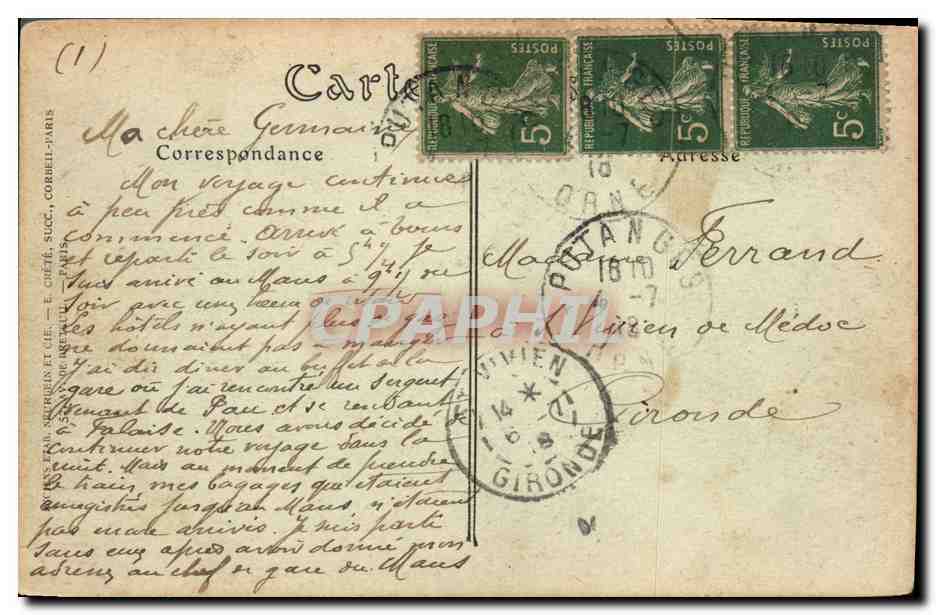 (1)
Carte
POSTES
REPUBLIQUE FRANÇAISE
5c
POSTES
REPUBLIQUE FRANÇAISE
5c
POSTES
REPUBLIQUE FRANÇAISE
5c
PUTANG
18
ORN
Ma chère Germaine
Correspondance
Adresse
Mon voyage continue
à peu près comme il a
commencé. Arrivé à
et reparti le soir à 5h Je
suis arrivé au Mans à 9h du
soir avec une
Les hôtels n'ayant plus
ne donnaient pas à manger
J'ai dû diner au buffet de la
gare où j'ai rencontré un sergent
venant de Pau et se rendant
à Falaise. Nous avons décidé
continuer notre voyage dans la
nuit. Mais au moment de prendre
le train, mes bagages que étaient
enregistrés jusqu'au Mans, n'étaient
pas encore arrivés. Je suis parti
sans eux après avoir donné mon
adresse au chef de gare du Mans
Madame Ferrand
à St Vivien de Médoc
Gironde
PUTANGES
18 10
-7
ORN
VIVIEN
14
GIRONDE
NEURDEIN ET CIE. - E. CRÉTÉ, SUCC., CORBEIL-PARIS
PARIS
CPAPHIL